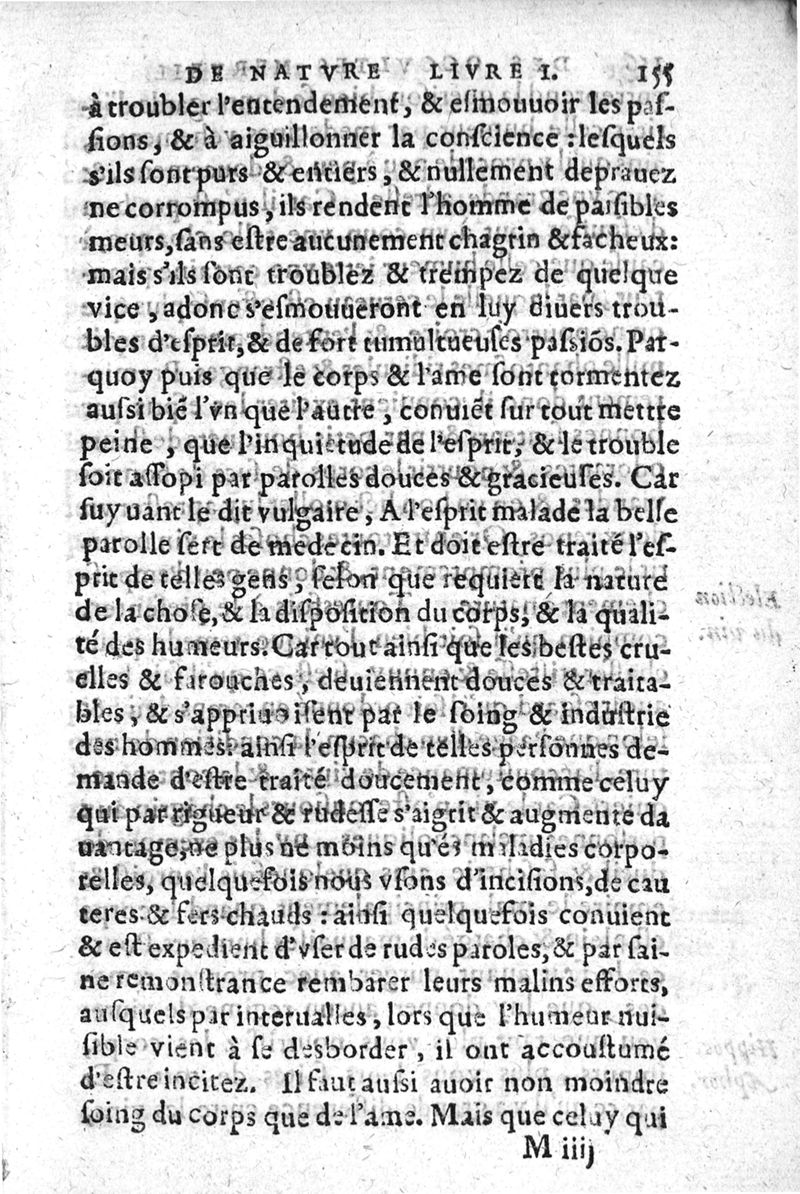 DE NATVRE LIVRE I. 155
à troubler l'entendement, & esmouuoir les paſ-
ſions, & à aiguillonner la conſcience : leſquels
s'ils ſont purs & entiers, & nullement deprauez
ne corrompus, ils rendent l'homme de paiſibles
meurs, ſans eſtre aucunement chagrin & facheux:
mais s'ils ſont troublez & trempez de quelque
vice, adonc s'eſmouueront en luy diuers trou-
bles d'eſprit, & de fort tumultueuſes paſſiõs. Par-
quoy puis que le corps & l'ame ſont tormentez
auſſi biẽ l'vn que l'autre, conuiẽt ſur tout mettre
peine, que l'inquietude de l'eſprit, & le trouble
ſoit aſſopi par parolles douces & gracieuſes. Car
ſuyuant le dit vulgaire, A l'eſprit malade la belle
parolle ſert de medecin. Et doit eſtre traité l'eſ-
prit de telles gens, ſelon que requiert la nature
de la choſe, & la diſpoſition du corps, & la quali-
té des humeurs. Car tout ainſi que les beſtes cru-
elles & farouches, deuiennent douces & traita-
bles, & s'appriuoiſent par le ſoing & induſtrie
des hommes: ainſi l'eſprit de telles perſonnes de-
mande d'eſtre traité doucement, comme celuy
qui par rigueur & rudeſſe s'aigrit & augmente da
uantage, ne plus ne moins qu'és maladies corpo-
relles, quelquefois nous vſons d'inciſions, de cau
teres & fers chauds : ainſi quelquefois conuient
& eſt expedient d'vſer de rudes paroles, & par ſai-
ne remonſtrance rembarer leurs malins efforts,
auſquels par interualles, lors que l'humeur nui-
ſible vient à ſe desborder, il ont accouſtumé
d'eſtre incitez. Il faut auſſi auoir non moindre
ſoing du corps que de l'ame. Mais que celuy qui
M iiij